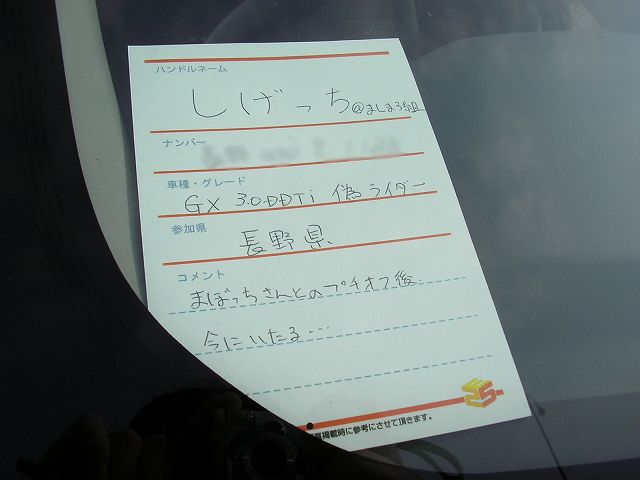 ハンドルネーム
しげっち@ましまろ組
ナンバー
車種・グレード
GX 3.0DDTi 偽ライダー
参加県
長野県
コメント
まぼっちさんとのプチオフ後、
今にいたる…
掲載時に参考にさせて頂きます。